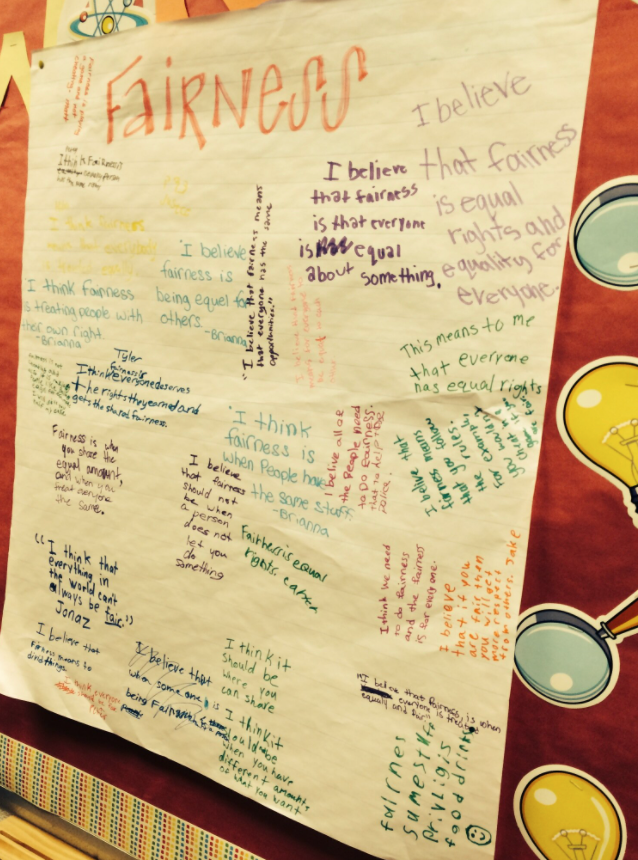 FAIRNESS
I believe
that fairness
is equal
rights and
equality for
everyone.
I believe
that fairness
is that everyone
is equal
about something.
I think Fairness
"I believe
fairness is
being equal for
others.
-Brianna
"I believe that fairness means
that everyone has the same
opportunities."
I think fairness
is treating people with
their own right.
-Brianna
This means to me
that everyone
has equal rights
Tyler
Fairness is
I think everyone deserves
the rights they earned and
gets the shared fairness.
"I think
fairness is
when People have
the same stuff
-Brianna
I belive all of
the People need
to do fairness.
that to help the
police.
I believe that
fairness means
that you follow
the rules.
For example,
you wouldn't
Fairness is when
you share the
equal amount,
and when you
treat everyone
the same.
I believe
that fairness
should not
be when
a person
does not
let you
do
something
Fairness is equal
rights.
"I think that
everything in
the world can't
always be fair."
Jonaz
I think the need
to do fairness
and the fairness
is for everyone.
I believe
that if you
are fair then
you will get
more respect
from others. Jake
I believe that
Fairness means to
divid things.
I believe that
when someone is
being Fair
I think it
should be
where you
can share
I think it
would be
when you have
different amounts
of what you want
"I belive that fairness is when
everyone is treated
equally and fair"
fairnes
sumest
privligis
food drink